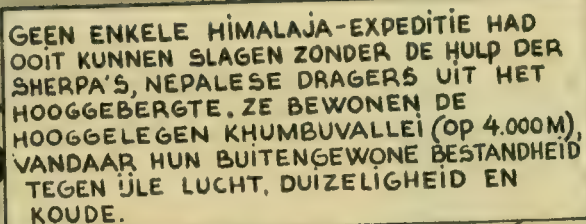 GEEN ENKELE HIMALAJA-EXPEDITIE HAD
OOIT KUNNEN SLAGEN ZONDER DE HULP DER
SHERPA'S, NEPALESE DRAGERS UIT HET
HOOGGEBERGTE. ZE BEWONEN DE
HOOGGELEGEN KHUMBUVALLEI (OP 4.000 M),
VANDAAR HUN BUITENGEWONE BESTANDHEID
TEGEN IJLE LUCHT, DUIZELIGHEID EN
KOUDE.